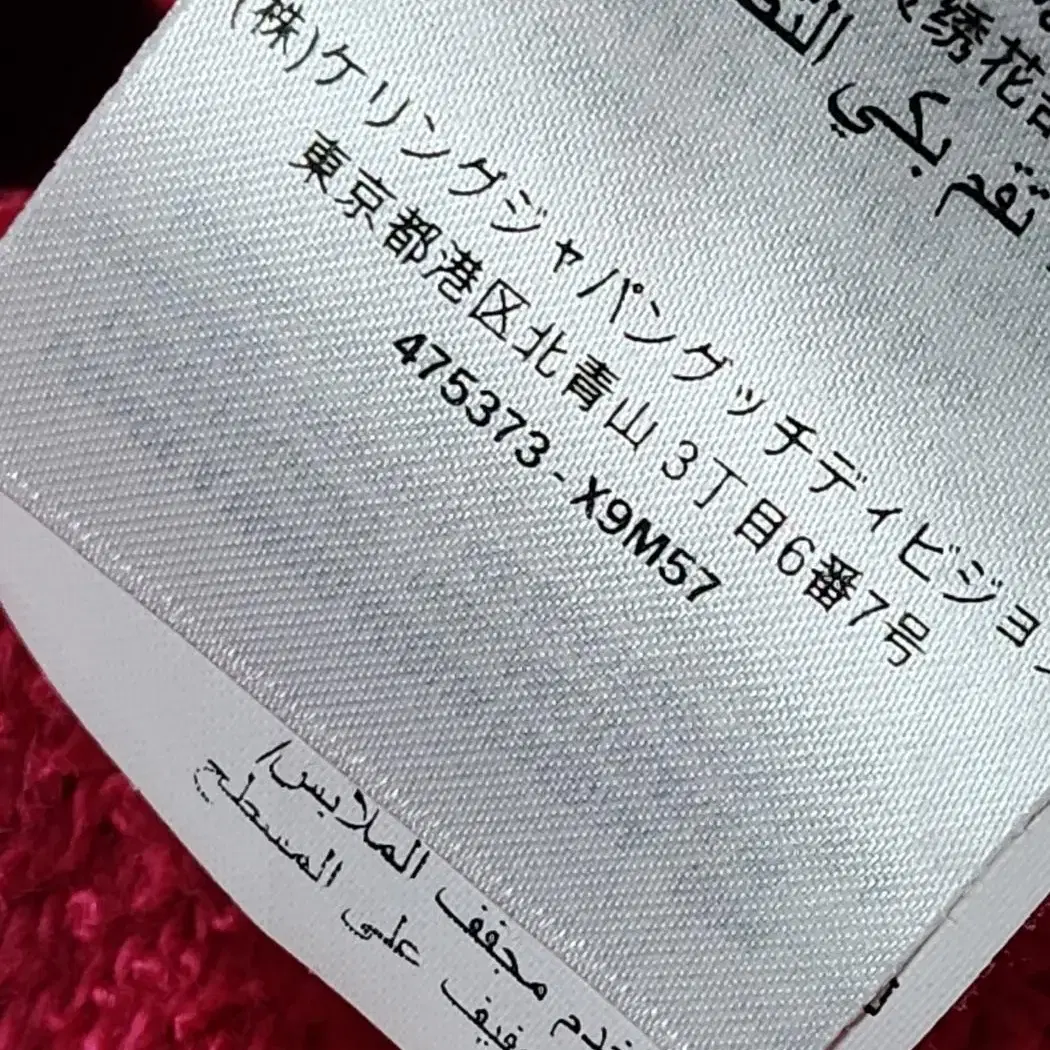 绣花
تقم بكي
(株)ケリングジャパングッチディビジョ
東京都港区北青山3丁目6番7号
475373-X9M57
مجفف الملابس/
على المسطح